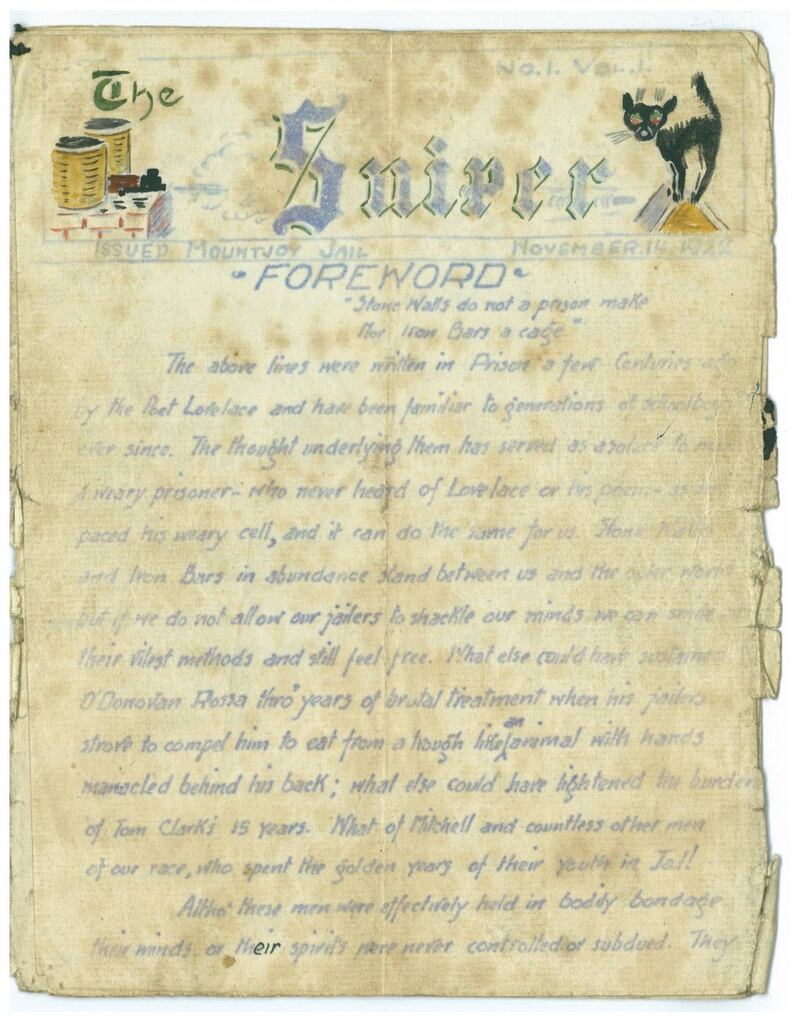 No. 1. Vol. 1.
The
Sniper
Issued Mountjoy Jail
November. 14, 1922
"FOREWORD"
"Stone Walls do not a prison make
Nor Iron Bars a cage"
The above lines were written in Prison a few Centuries ago
by the Poet Lovelace and have been familiar to generations of schoolboys
ever since. The thought underlying them has served as a solace to many
a weary prisoner - who never heard of Lovelace or his poem - as he
paced his weary cell, and it can do the same for us. Stone Walls
and Iron Bars in abundance stand between us and the outer world
but if we do not allow our jailers to shackle our minds we can smile
their vilest methods and still feel free. What else could have sustained
O'Donovan Rossa thro' years of brutal treatment when his jailers
strove to compel him to eat from a trough like an animal with hands
manacled behind his back; what else could have lightened the burden
of Tom Clark's 15 years. What of Mitchell and countless other men
of our race, who spent the golden years of their youth in Jail!
Altho' these men were effectively held in boddy bondage
their minds or their spirits were never controlled or subdued. They